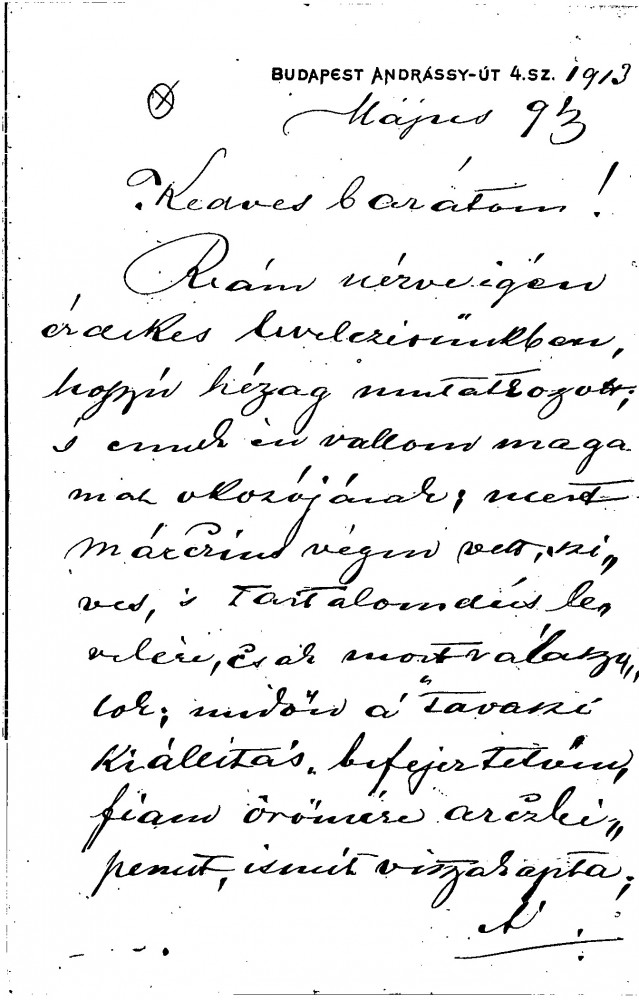 BUDAPEST ANDRÁSSY-ÚT 4.SZ. 1913
Május 9
Kedves barátom!
Reám nézve igén
érdekes levelezésünkben,
hosszú hézag mutatkozott;
s ennek én vallom maga
mat okozójának; mert
Márczius végén vett, ked„
ves, s tartalomdús le„
velére, csak most válasz„
lok; midőn a "Tavaszi
Kiállítás„ befejeztetvén,
fiam örömére arczké„
pemet, ismét visszakapta;
A